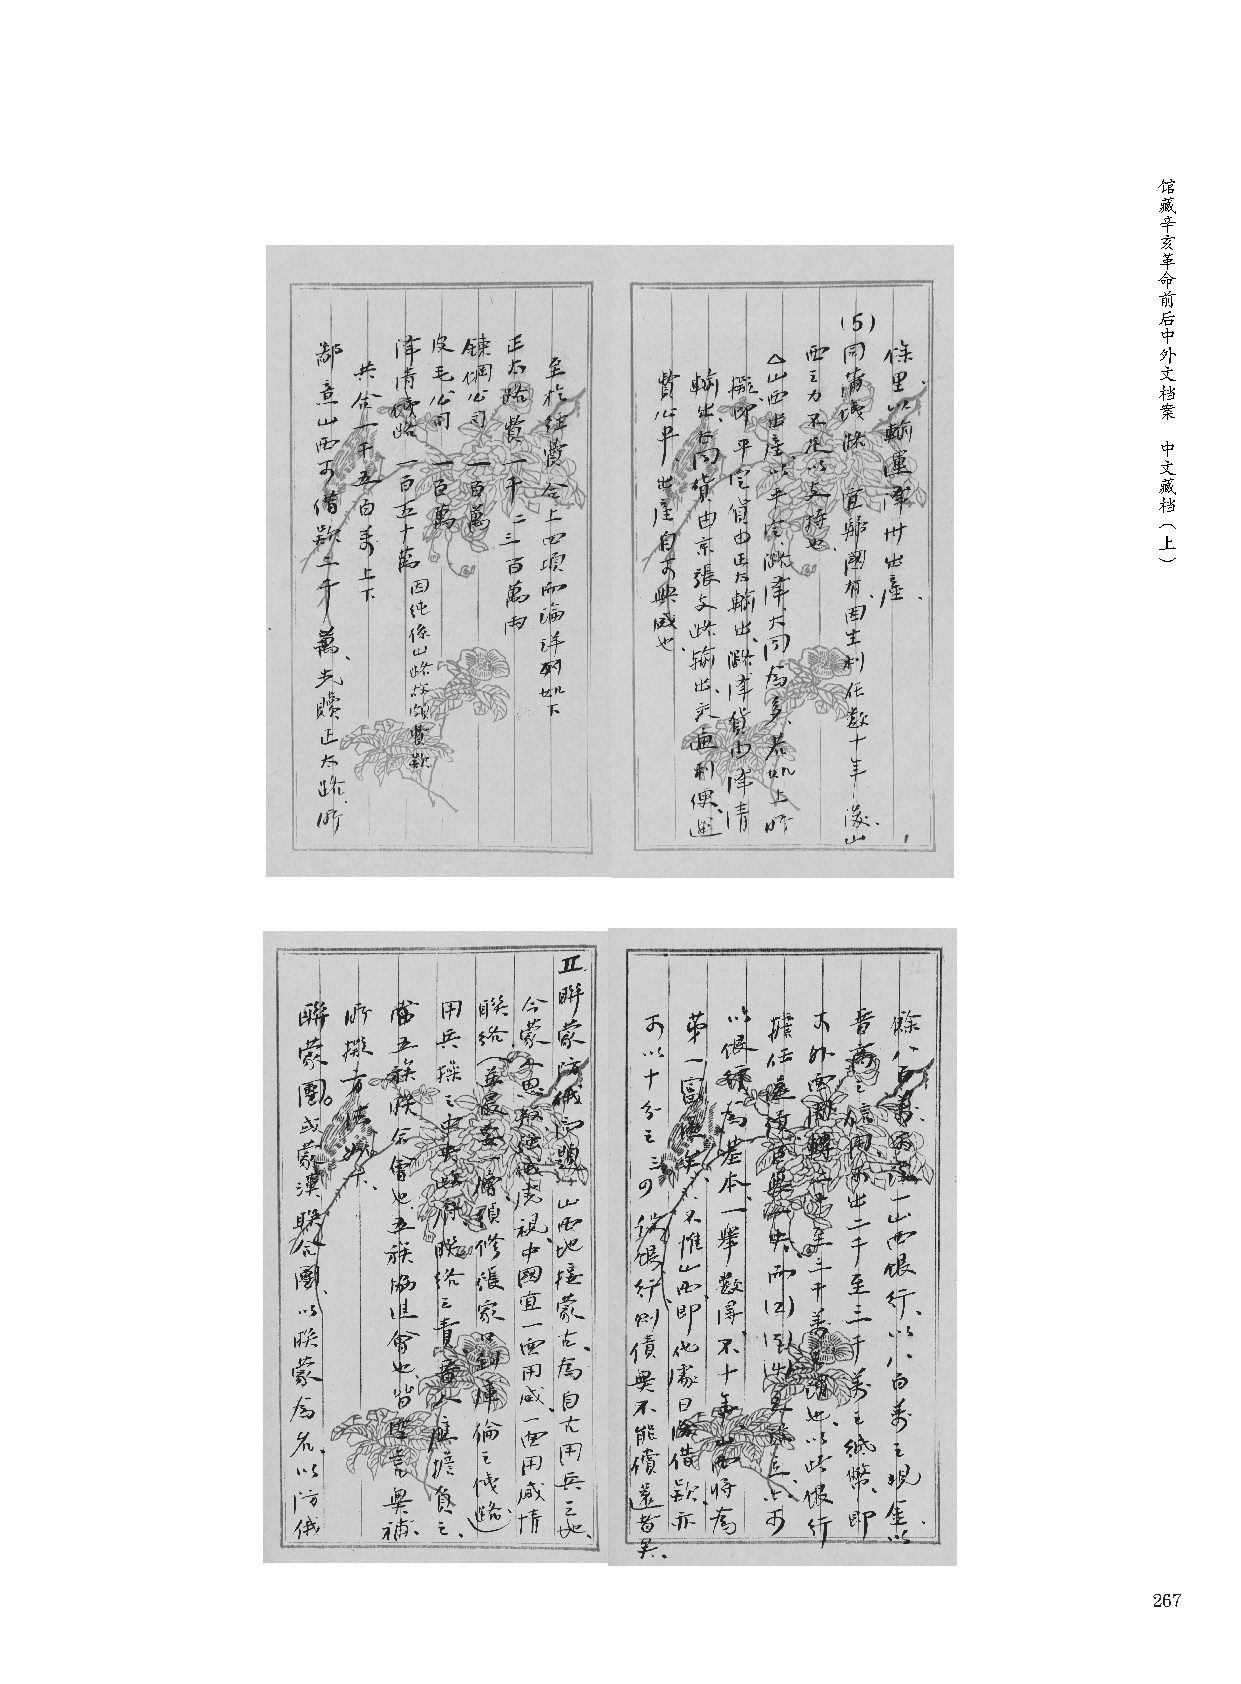 馆藏辛亥革命前后中外文档案　中文藏档（上）
條里以輸運澤州出產、
(5)同蒲鐵路　宜歸國有因生利在數十年後、山
西之力不足以支持也、
△山西出產、以平定、潞澤、大同為多、若如上所
擬、即平定貨由正太輸出、潞澤貨由澤清
輸出、大同貨由京張支路輸出、交通利便、運
費公平　出產自可興盛也、
至於經費合上四項而論詳列如下
正太路費一千二三百萬兩
鍊鋼公司　一百萬
皮毛公司　一百萬
澤清鐵路　一百五十萬　因純係山路故須費款
共合一千五百萬上下
鄙意山西可借款二千萬、先贖正太路、所
餘八百萬、可設一山西銀行、以八百萬之現金以
晉商之信用可出二千至三千萬之紙幣、即
擔任
以銀號為基本、一舉數得、不十年山西將為
第一富強矣、不惟山西即他處日後借款、亦
可以十分之三四設銀行則債無不能償還者矣.
II 聯蒙防俄問題　山西地接蒙古、為自古用兵之地、
今蒙又思叛強俄虎視、中國宜一面用威、一面用感情
聯絡(其最要一層須修張家口到庫倫之鐵路)
用兵操之中央政府聯絡之責晉人應擔負之、
當五族聯合會也、五族協進會也、皆空言無補、
所擬方法如下、
聯蒙團。或蒙漢聯合團、以聯蒙為名、以防俄
267